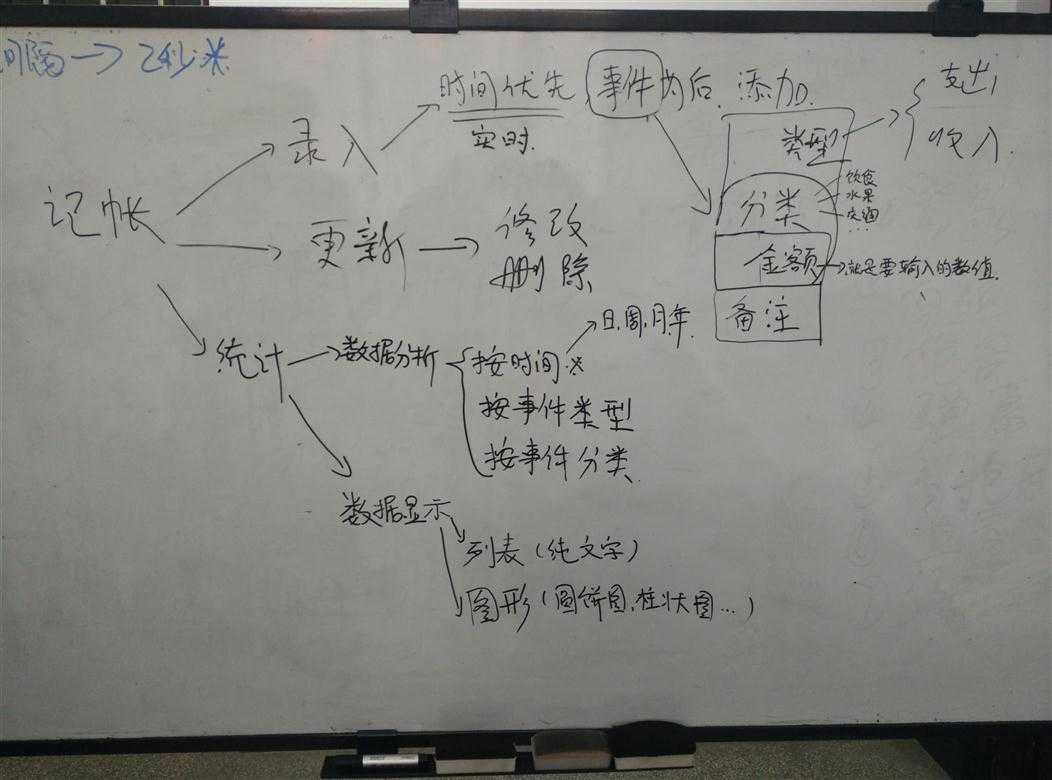 间隔→2秒 米
时间优先,事件为后.添加.
实时.
支出
收入.
录入
类型
饮食
水果
分类
交通
...
记帐
更新→修改
删除
金额→就是要输入的数值.
备注
日.周.月.年
统计→数据分析
按时间※
按事件类型
按事件分类
数据显示
列表(纯文字)
图形(圆饼图,柱状图...)